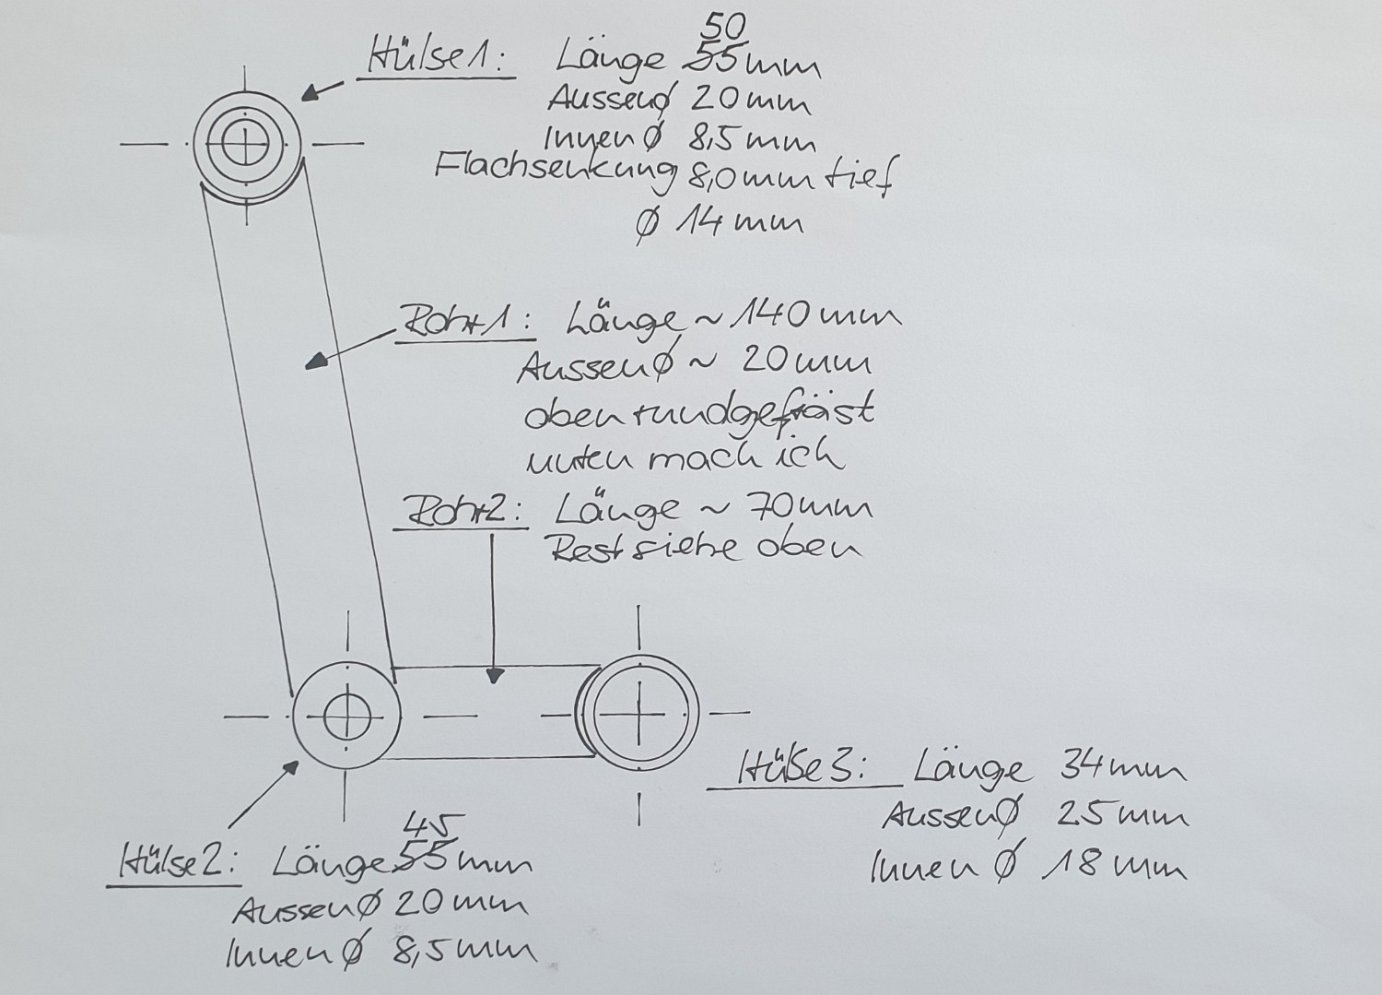 50
Hülse 1: Länge 55 mm
Aussen Ø 20 mm
Innen Ø 8,5 mm
Flachsenkung 8,0 mm tief
Ø 14 mm
Rohr 1: Länge ~ 140 mm
Aussen Ø ~ 20 mm
oben rundgefräst
unten mach ich
Rohr 2: Länge ~ 70 mm
Rest siehe oben
Hülse 3: Länge 34 mm
Aussen Ø 25 mm
Innen Ø 18 mm
45
Hülse 2: Länge 55 mm
Aussen Ø 20 mm
Innen Ø 8,5 mm